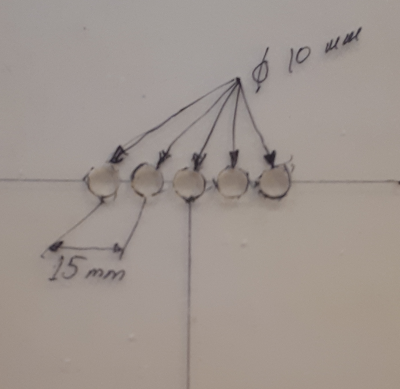 ϕ 10 mm
15 mm